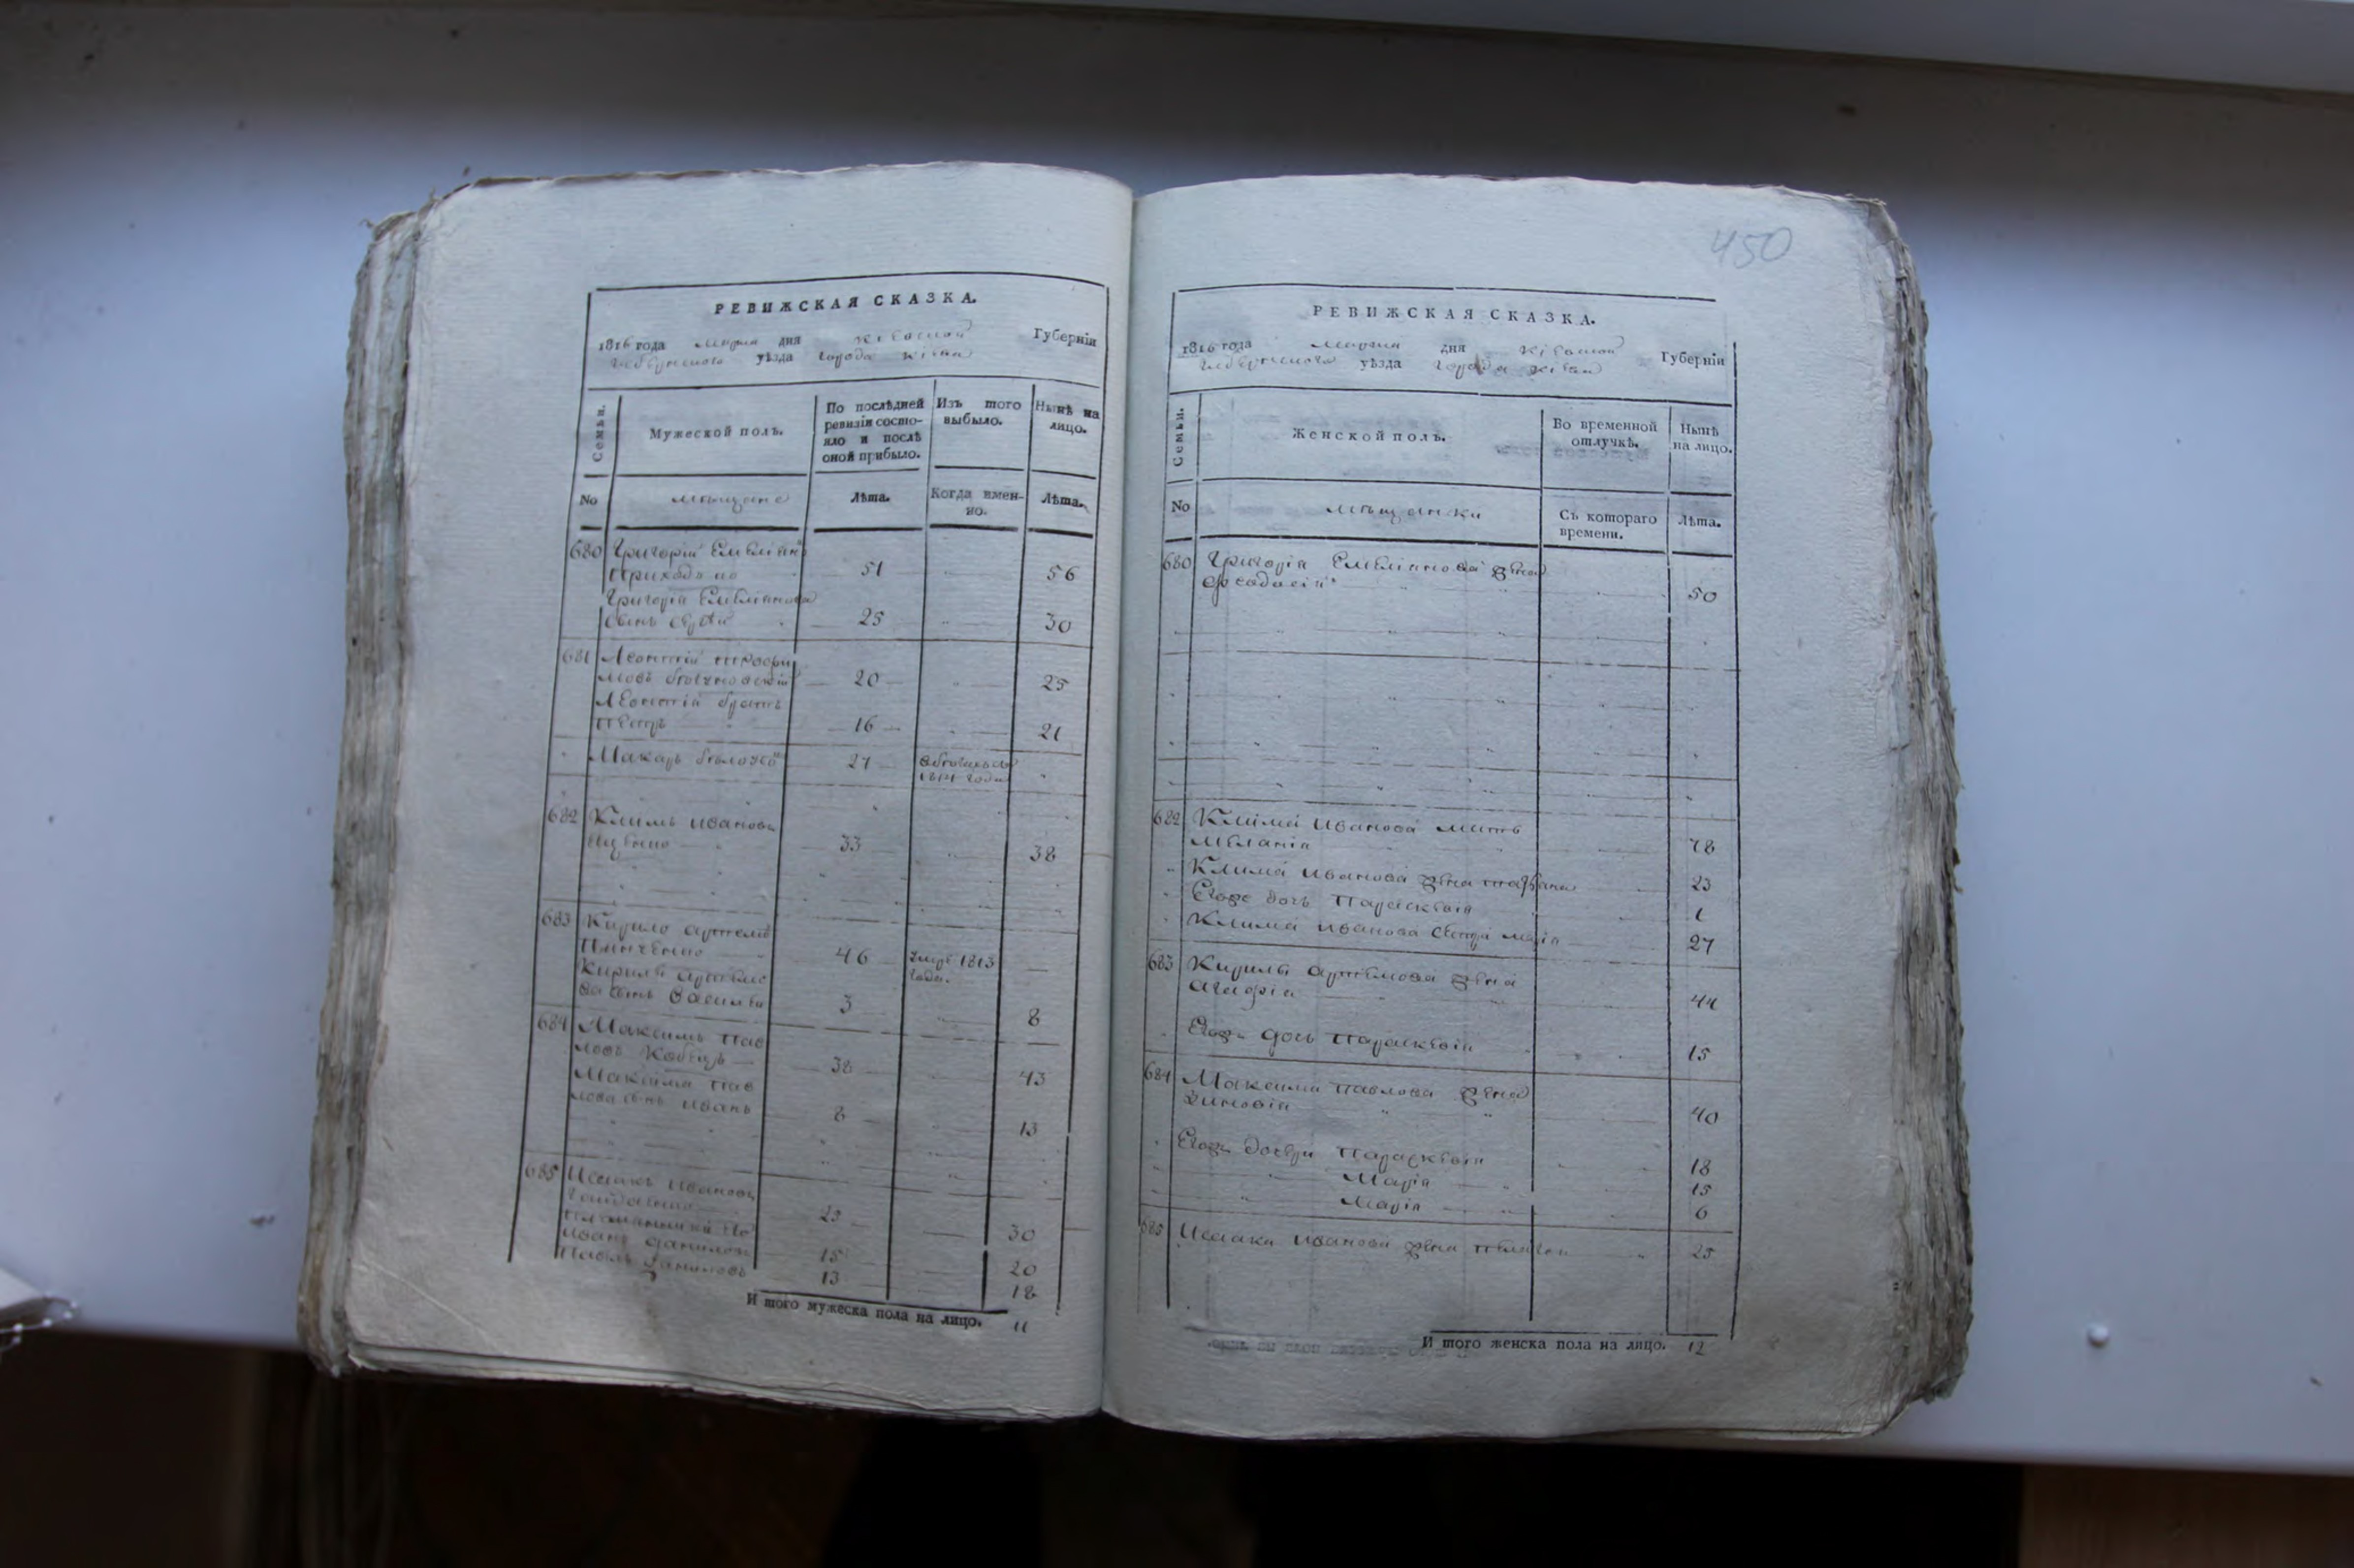 РЕВИЖСКАЯ СКАЗКА.
1816 года марта дня Кіевской Губерніи
уѣзда города Кіева
Семьи.
Мужеской полъ.
По послѣдней ревизіи состояло и послѣ оной прибыло.
Изъ того выбыло.
Нынѣ на лицо.
No
мѣщане
Лѣта.
Когда имен-
но.
Лѣта.
680 Григорій Емелiян
Приходко 51 56
Григорія Емелiянова
сынъ 25 30
681 Леонтій Трофи
мовъ 20 25
Леонтія братъ
Петръ 16 21
Макаръ 27
1811 года
682 Климъ Ивановъ
33 38
683 Кирило Артемо
46 умре 1813
года.
Кирилы Артемо
ва сынъ Василій 3 8
684 Максимъ Пав
ловъ Кобецъ 38 43
Максима Пав
лова сынъ Иванъ 8 13
685 Исаакъ Ивановъ
25 30
Иванъ Даниловъ 15 20
Павелъ Даниловъ 13 18
И того мужеска пола на лицо. 11
450
РЕВИЖСКАЯ СКАЗКА.
1816 года марта дня Кіевской Губерніи
уѣзда города Кіева
Семьи.
Женской полъ.
Во временной отлучкѣ.
Нынѣ на лицо.
No
мѣщанки
Съ котораго
времени.
Лѣта.
680 Григорія Емелiянова жена
Феодосія 50
682 Клима Иванова мать
Меланія 78
Клима Иванова жена Татьяна 23
Егоже дочь Параскевія 1
Клима Иванова сестра Марія 27
683 Кирилы Артемова жена
Агафія 44
Егожъ дочь Параскевія 15
684 Максима Павлова жена
Зиновія 40
Егожъ дочери Параскевія 18
Марія 15
Марія 6
685 Исаака Иванова жена Пелагея 25
И того женска пола на лицо. 12